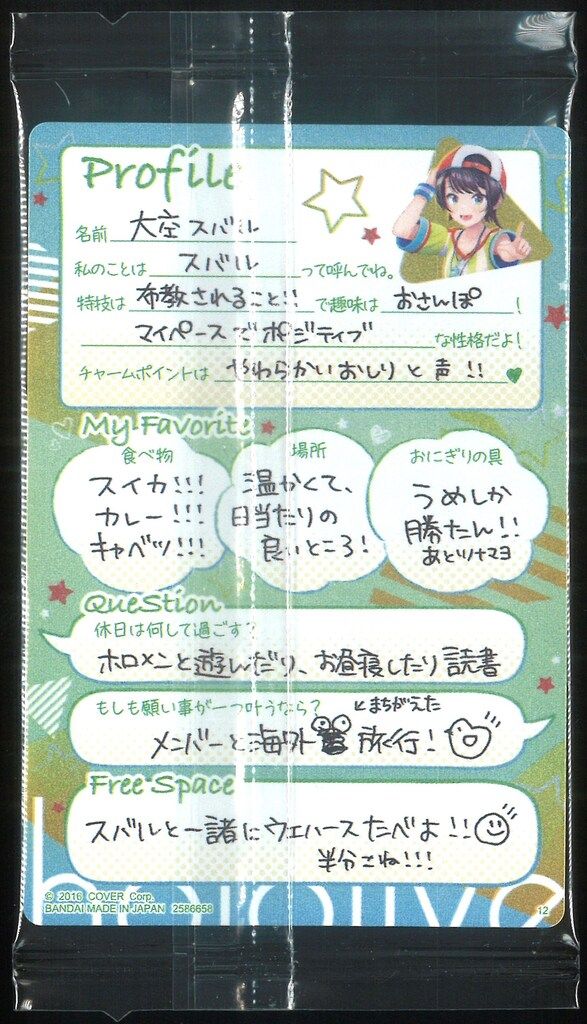 Profile
名前 大空スバル
私のことは スバル って呼んでね。
特技は 布教されること!! で趣味は おさんぽ !
マイペースでポジティブ な性格だよ!
チャームポイントは やわらかいおしりと声!!
My Favorite
食べ物
スイカ!!!
カレー!!!
キャベツ!!!
場所
温かくて、
日当たりの
良いところ!
おにぎりの具
うめしか
勝たん!!
あとツナマヨ
QueStion
休日は何して過ごす?
ホロメンと遊んだり、お昼寝したり読書
もしも願い事が一つ叶うなら?
とまちがえた
メンバーと海外旅行!
Free Space
スバルと一諸にウエハースたべよ!!
半分こね!!!
hololive
© 2016 COVER Corp.
BANDAI MADE IN JAPAN 2586658
12